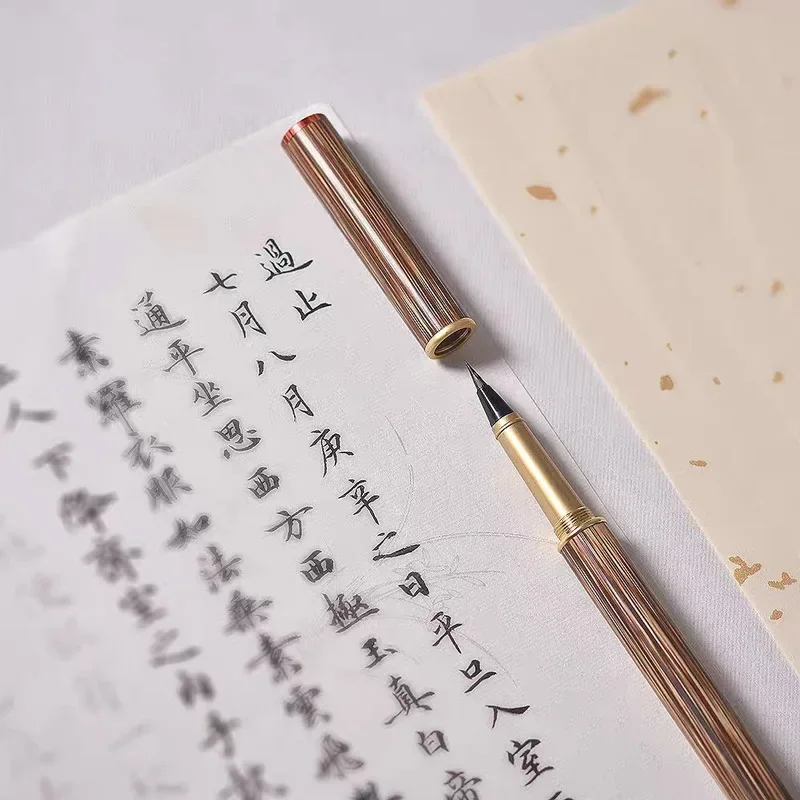 過止
七月八月庚辛之日平旦入室
通平坐思西方西極玉真白帝
素羅衣服如法乘素雲飛
人下降齋室之内手執